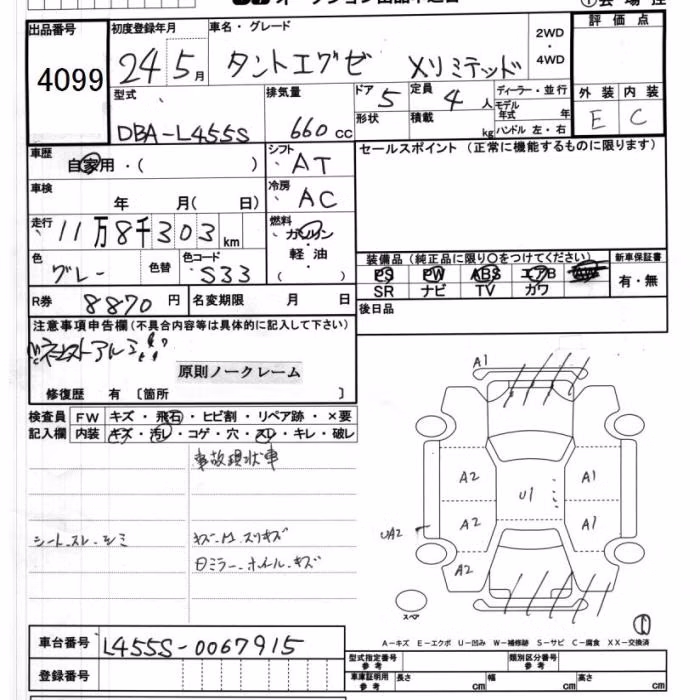 オークション出品申込書
出品番号 4099
初度登録年月 24 5月
車名・グレード タントエグゼ Xリミテッド
2WD・4WD
評価点
型式 DBA-L455S
排気量 660cc
ドア 5
定員 4人
形状
積載 kg
ディーラー・並行
モデル年式 年
ハンドル 左・右
外装 E
内装 C
車歴 自家用・( )
シフト AT
セールスポイント (正常に機能するものに限ります)
車検 年 月( 日)
冷房 AC
走行 11万8千303km
燃料 ガソリン・軽油・( )
色 グレー 色替
色コード S33
装備品(純正品に限り○をつけてください)
新車保証書
PS PW ABS エアB
SR ナビ TV カワ
有・無
R券 8870円
名変期限 月 日
後日品
注意事項申告欄(不具合内容等は具体的に記入して下さい)
原則ノークレーム
修復歴 有 〔箇所 〕
検査員記入欄
FW キズ・飛石・ヒビ割・リペア跡・×要
内装 キズ・汚レ・コゲ・穴・スレ・キレ・破レ
事故現状車
シートスレ・シミ
キズ・凹・スリキズ
ミラー・ホイールキズ
A1
A2
A1
U1
A2
A1
UA2
A2
スペア
A-キズ E-エクボ U-凹み W-補修跡 S-サビ C-腐食 XX-交換済
車台番号 L455S-0067915
登録番号
型式指定番号 参考
類別区分番号 参考
車庫証明用 参考
長さ cm
幅 cm
高さ cm